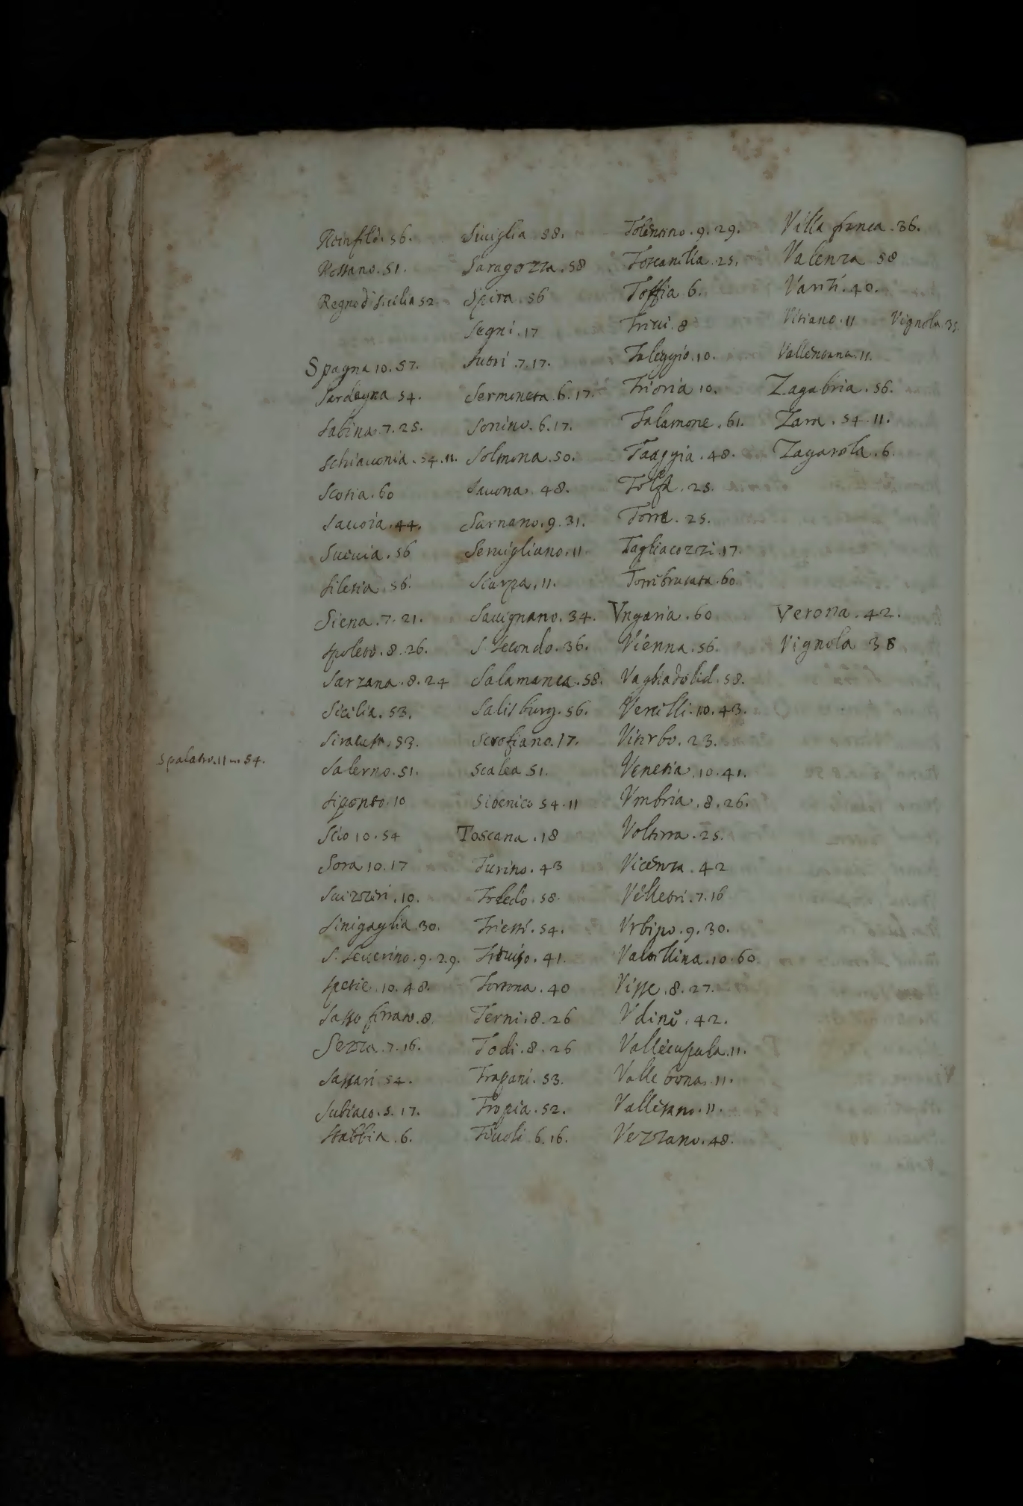 Reinfilo. 56.
Rossano. 51.
Regno di Sicilia 52.
Spagna 10. 57.
Sardegna 54.
Sabina. 7. 25.
Schiauonia. 54. 11.
Scotia. 60
Sauoia. 44.
Sueuia. 56
Silesia. 56.
Siena. 7. 21.
Spoleto. 8. 26.
Sarzana. 8. 24
Sicilia. 53.
Siracusa. 53.
Spalatro. 11 54.
Salerno. 51.
Siponto. 10
Scio 10. 54
Sora 10. 17
Suizzeri. 10.
Sinigaglia 30.
S. Seuerino. 9. 29.
Spetie. 10. 48.
Sasso ferrato. 8.
Sezza. 7. 16.
Sassari. 54.
Subiaco. 5. 17.
Stabbia. 6.
Siuiglia 58.
Saragozza. 58
Spira. 56
Segni. 17
Sutri. 7. 17.
Sermoneta. 6. 17.
Sonino. 6. 17.
Solmona. 50.
Sauona. 48.
Sarnano. 9. 31.
Seruigliano. 11
Scurpa. 11.
Sauignano. 34.
S. Secondo. 36.
Salamanca. 58.
Salisburg. 56.
Scrofiano. 17.
Scalea 51.
Sibenico 54. 11
Toscana. 18
Turino. 43
Toledo. 58
Trieste. 54.
Treuiso. 41.
Tortona. 40
Terni. 8. 26
Todi. 8. 26
Trapani. 53.
Tropia. 52.
Tiuoli. 6. 16.
Tolentino. 9. 29.
Toscanella. 25.
Toffia 6.
Treui. 8
Taleggio. 10.
Trioria 10.
Talamone. 61.
Taggia. 48.
Tolfa. 25.
Torre. 25.
Tagliacozzi. 17.
Torribruсata. 60
Vngaria. 60
Vienna. 56.
Vagliadolid. 58.
Vercelli. 10. 43.
Viterbo. 23.
Venetia. 10. 41.
Vmbria. 8. 26.
Volterra. 25.
Vicenza. 42
Velletri. 7. 16
Vrbino. 9. 30.
Valtellina. 10. 60.
Visse. 8. 27.
Vdine. 42.
Vallecupula. 11.
Valle bona. 11.
Vallesano. 11.
Vezzano. 48.
Villa franca. 36.
Valenza 58
Varesi. 40.
Vitiano. 11 Vignola 35
Vallentana. 11.
Zagabria. 56.
Zara. 54. 11.
Zagarola. 6
Verona. 42.
Vignola 38